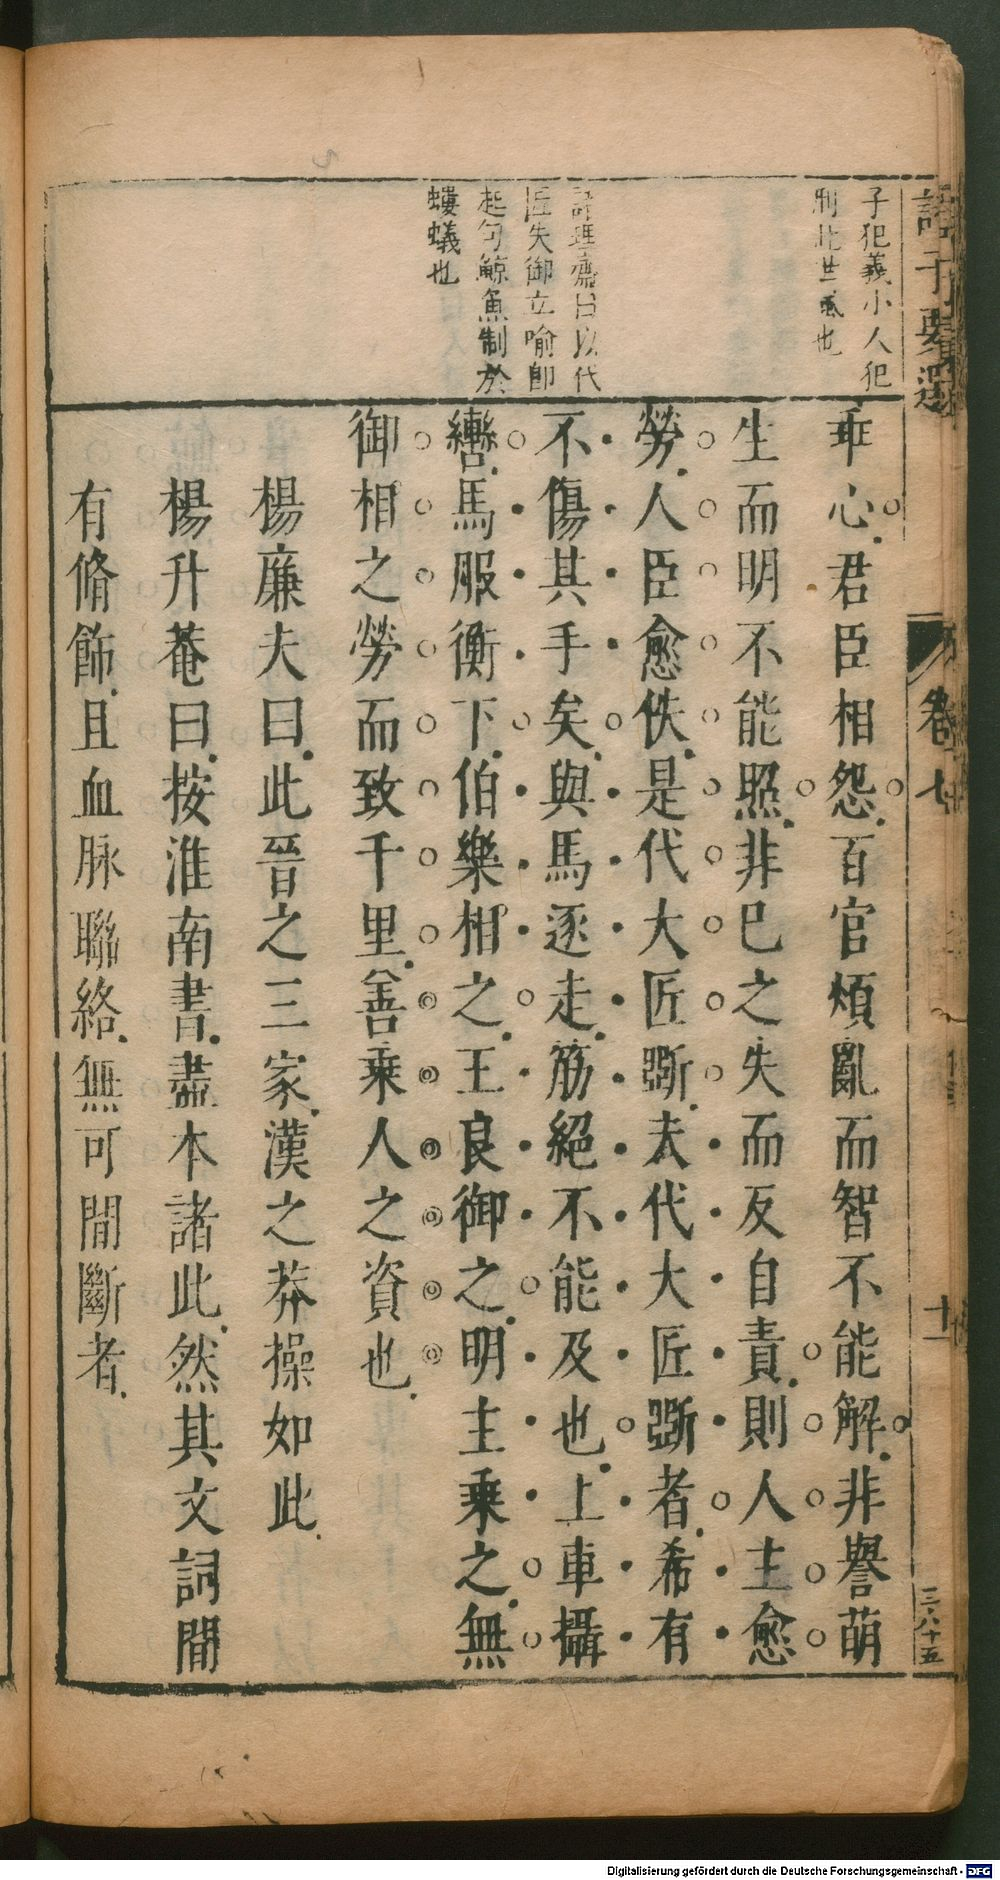 子犯義小人犯
刑此世
也
乖心君臣相怨百官煩亂而智不能解非譽萌
生而明不能照非已之失而反自責則人主愈
勞人臣愈佚是代大匠斲夫代大匠斲者希有
不傷其手矣與馬逐走筋絕不能及也上車攝
轡馬服衡下伯樂相之王良御之明主乘之無
御相之勞而致千里善乘人之資也
楊廉夫曰此晉之三家漢之莽操如此
楊升菴曰按淮南書盡本諸此然其文詞間
有脩飾且血脉聯絡無可間斷者
齋曰以代
匠失御立喻卽
起句鯨魚制於
螻蟻也
卷七
十一
三八十五
Digitalisierung gefördert durch die Deutsche Forschungsgemeinschaft - DFG